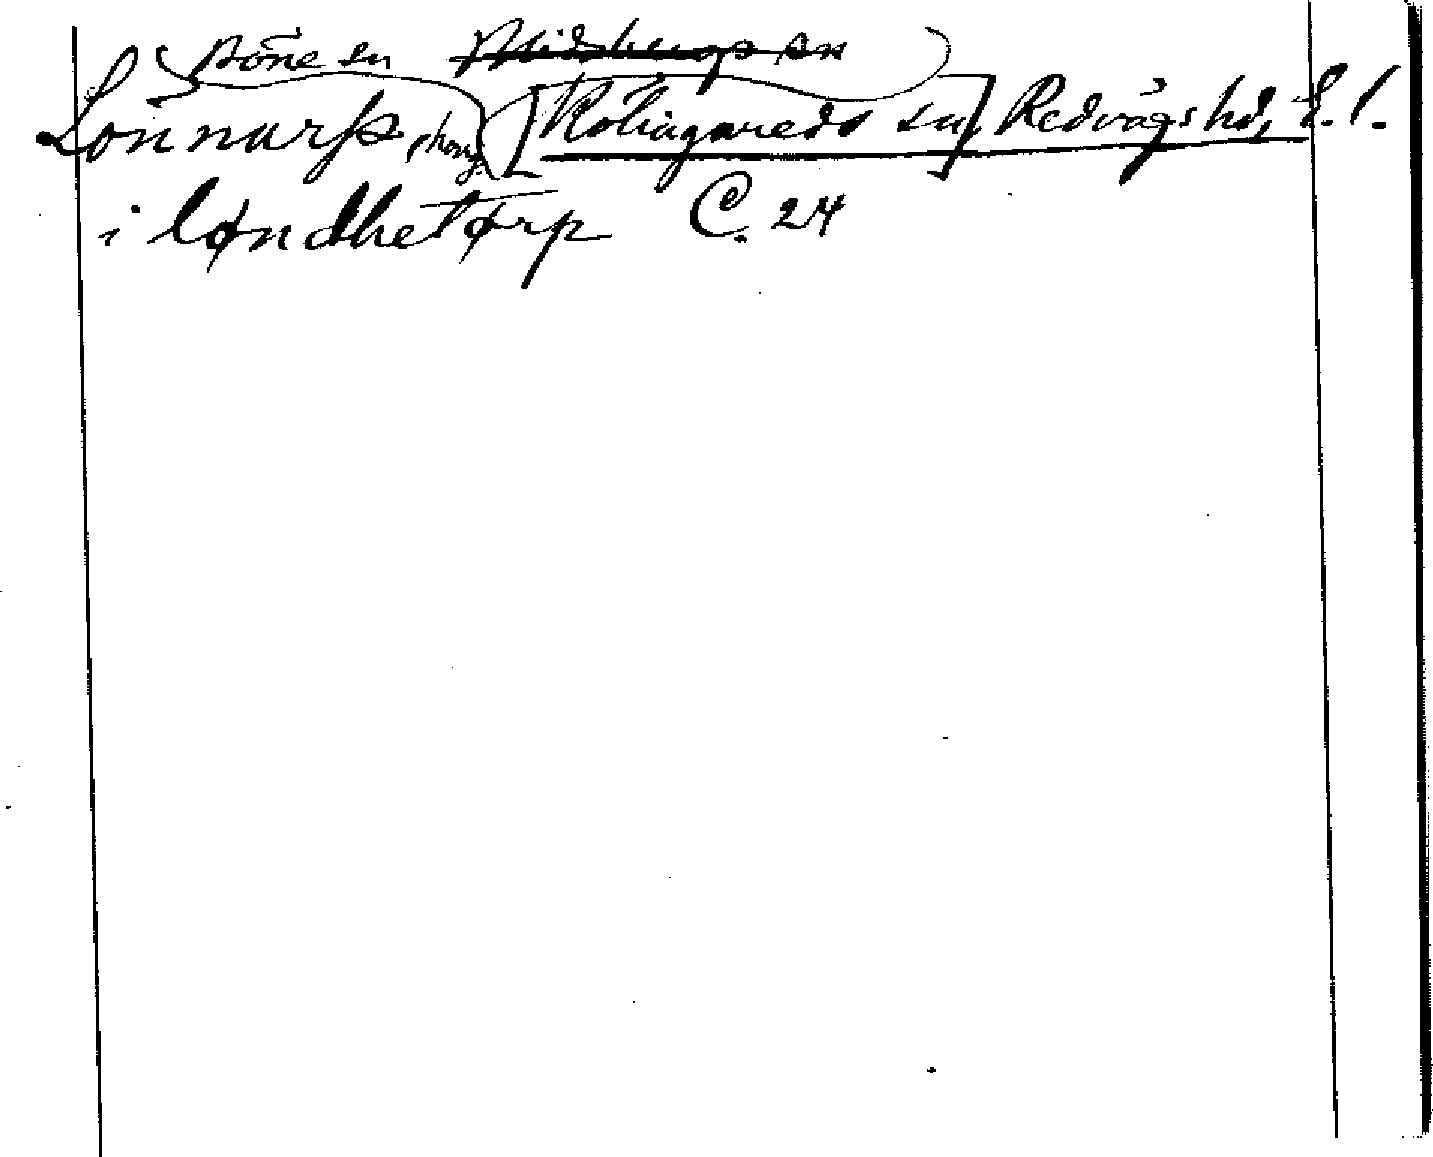 Böne sn ~~Blidsbergs sn~~
Lönnarp [Kölingareds sn] Redvägs hd, E. l.
i løndhetørp C. 24